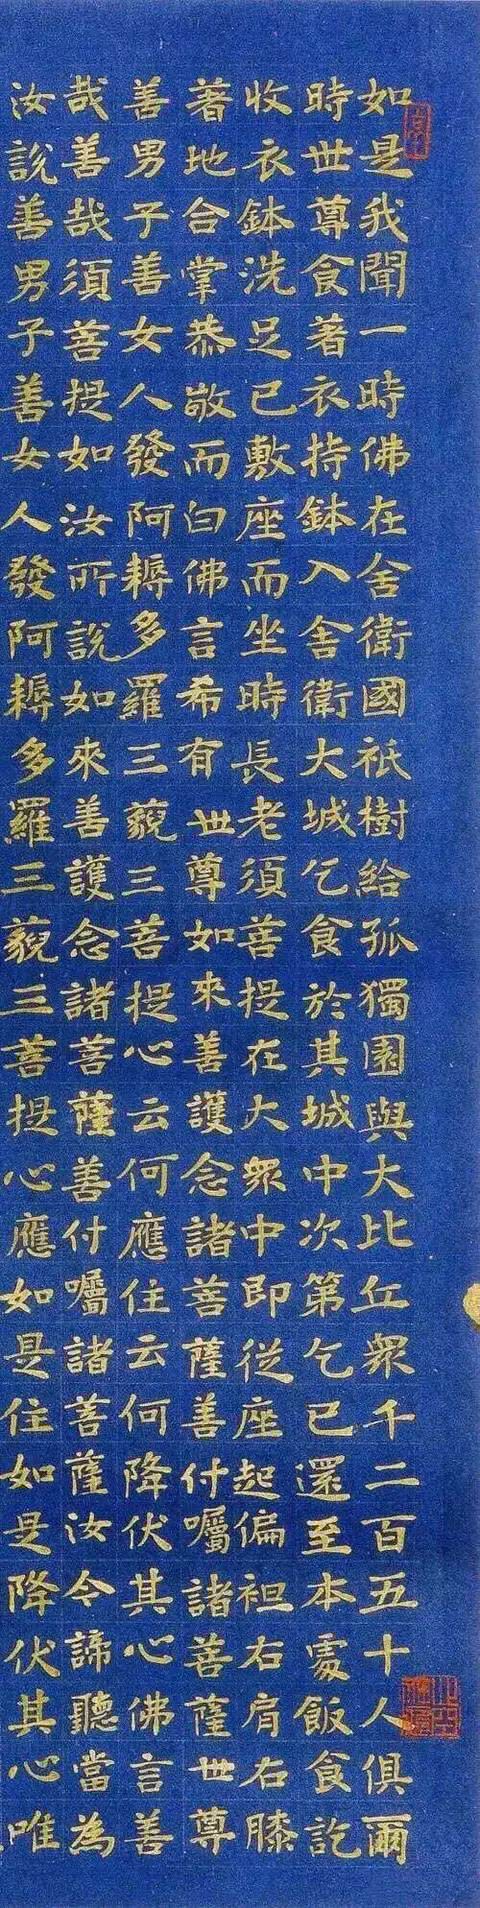 如是我聞一時佛在舍衛國祇樹給孤獨園與大比丘眾千二百五十人俱爾
時世尊食著衣持鉢入舍衛大城乞食於其城中次第乞已還至本處飯食訖
收衣鉢洗足已敷座而坐時長老須菩提在大眾中即從座起偏袒右肩右膝
著地合掌恭敬而白佛言希有世尊如來善護念諸菩薩善付囑諸菩薩世尊
善男子善女人發阿耨多羅三藐三菩提心云何應住云何降伏其心佛言善
哉善哉須菩提如汝所說如來善護念諸菩薩善付囑諸菩薩汝今諦聽當為
汝說善男子善女人發阿耨多羅三藐三菩提心應如是住如是降伏其心唯